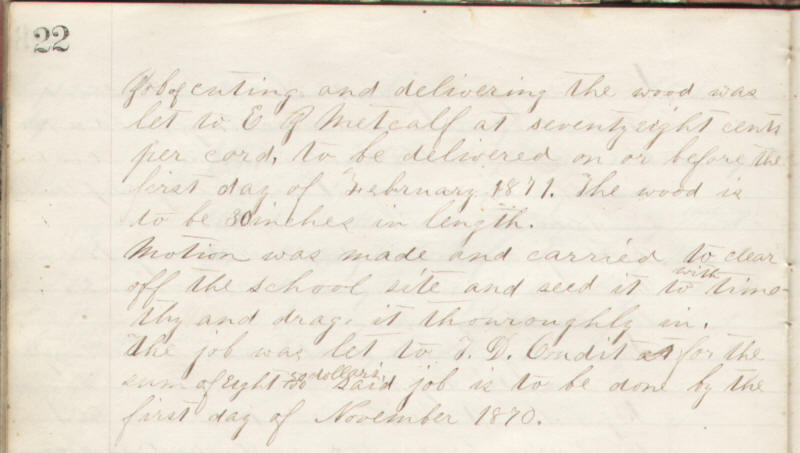 22
Job of cuting and delivering the wood was
let to E R Metcalf at seventy eight cents
per cord, to be delivered on or before the
first day of February 1871. The wood is
to be 30 inches in length.
Motion was made and carried to clear
off the school site and seed it to with timo-
thy and drag it thouroughly in.
The job was let to T. D. Condit at for the
sum of eight dollars. Said job is to be done by the
first day of November 1870.